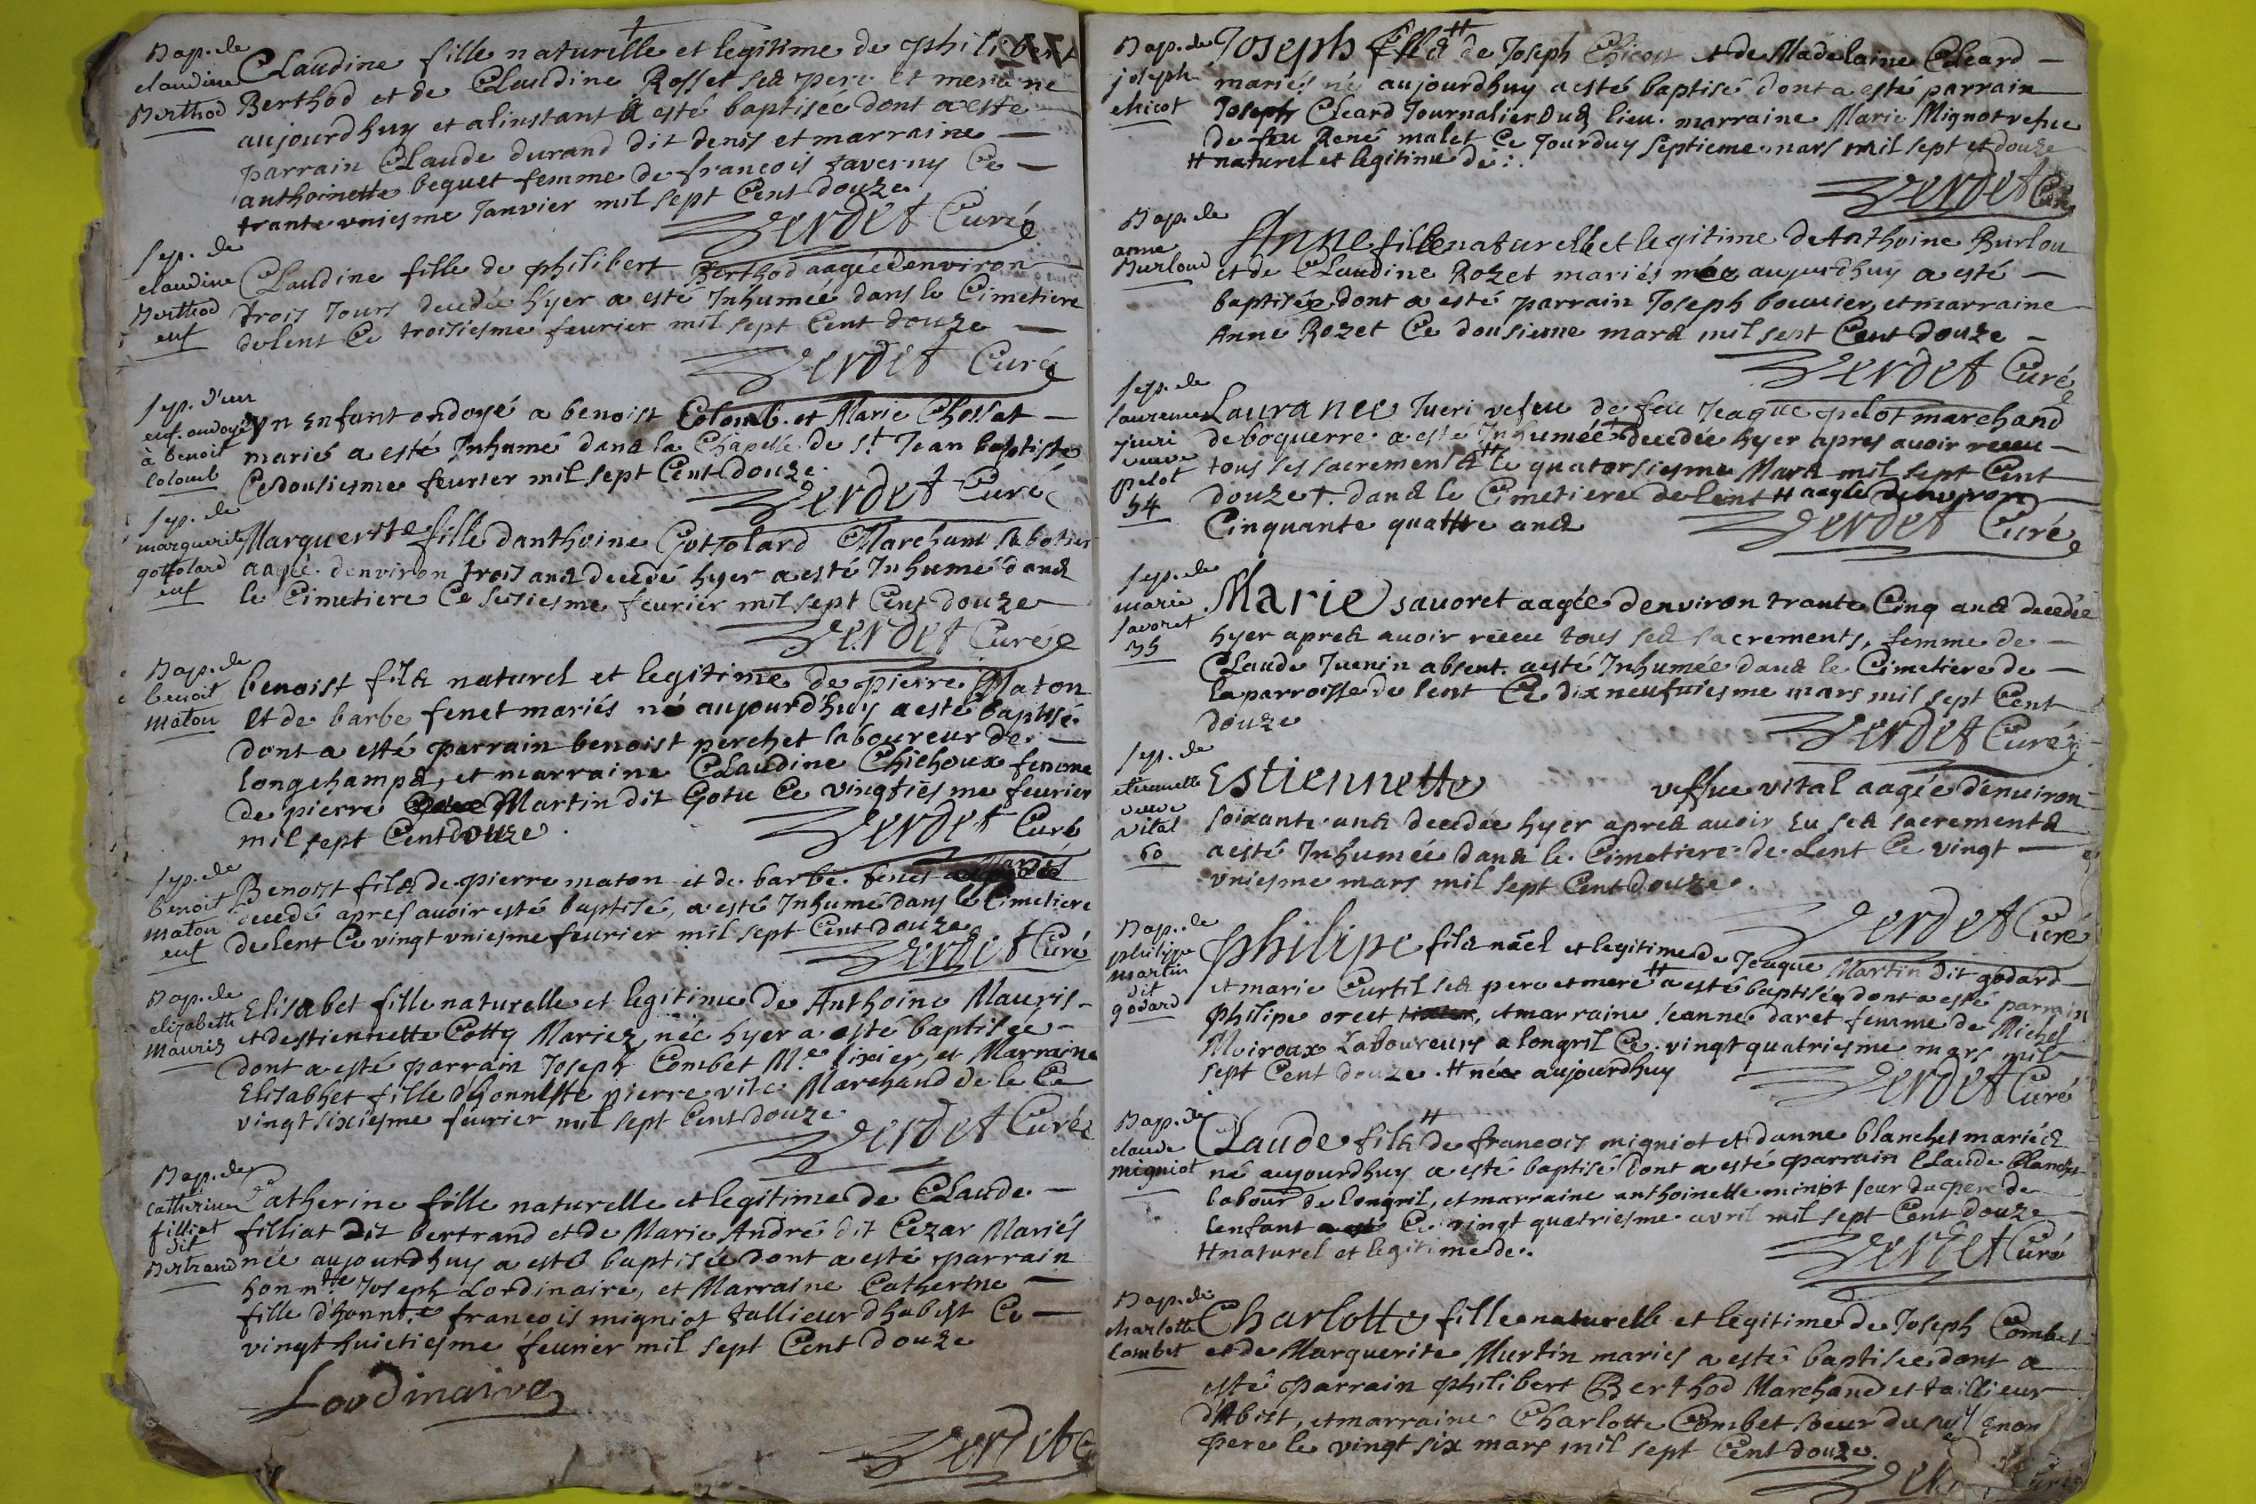 Bap. de
claudine
Berthod
Claudine fille naturelle et legitime de philibert
Berthod et de Claudine Rosset ses pere et mere ne
aujourdhuy et alinstant a esté baptisée dont a esté
parrain Claude durand dit denis et marraine
anthoinette bequet femme de francois taverny Ce
trante uniesme Janvier mil sept Cent douze
Verdet Curé
sep. de
claudine
Berthod
enf
Claudine fille de philibert Berthod aagée denviron
trois Jours decedée hyer a esté Inhumée dans le Cimetiere
delent Ce troisiesme feurier mil sept Cent douze
Verdet Curé
sep. d'un
enf. ondoyé
à benoit
Colomb
Un Enfant ondoyé a benoist Colomb et Marie Chossat
mariés a esté Inhumé dans la Chapelle de st Jean baptiste
Ce dousiesme feurier mil sept Cent douze
Verdet Curé
sep. de
marguerite
gottolard
enf
Marguerite fille danthoine Gottolard Marchant sabotier
aagée denviron trois ans decedé hyer a esté Inhumé dans
le Cimetiere Ce sesiesme feurier mil sept Cent douze
Verdet Curé
Bap. de
benoit
maton
benoist fils naturel et legitime de pierre Maton
et de barbe fenet mariés né aujourdhuy a esté baptisé
dont a esté parrain benoist perchet laboureur de
longchamps, et marraine Claudine Chichoux femme
de pierre Martin dit Gotu Ce vingtiesme feurier
mil sept Cent douze
Verdet Curé
sep. de
benoit
maton
enf
Benoist fils de pierre maton et de barbe fenet mariés
decedé apres avoir esté baptisé, a esté Inhumé dans le Cimetiere
delent Ce vingt uniesme feurier mil sept Cent douze
Verdet Curé
Bap. de
elizabeth
Mauris
Elisabet fille naturelle et legitime de Anthoine Mauris
et destiennette Cotty Mariez, née hyer a esté baptisée
dont a esté parrain Joseph Combet Me et Marraine
Elisabhet fille d'honneste pierre Marchand de le Ce
vingt sixiesme feurier mil sept Cent douze
Verdet Curé
Bap. de
Catherine
filliat
dit
Bertrand
Catherine fille naturelle et legitime de Claude
filliat dit bertrand et de Marie André dit Cezar Mariés
née aujourdhuy a esté baptisée dont a esté parrain
honnte Joseph Lordinaire, et Marraine Catherine
fille d'honnte francois migniot tallieur dhabist Ce
vingt huictiesme feurier mil sept Cent douze
Lordinaire
Verdet C
Bap. de
joseph
chicot
Joseph fils # de Joseph Chicot et de Madelaine Cleard
mariés né aujourdhuy a esté baptisé dont a esté parrain
Joseph Cleard Journalier dud lieu. marraine Marie Mignot vefue
de feu René malet Ce Jourduy septieme mars mil sept et douze
# naturel et legitime de :.
Verdet Curé
Bap. de
anne
Burloud
Anne fille naturelle et legitime de Anthoine Burlou
et de Claudine Rozet mariés née aujourdhuy a esté
baptisée, dont a esté parrain Joseph bouuier, et marraine
Anne Rozet Ce dousieme mars mil sept Cent douze
Verdet Curé
sep. de
laurence
yueri
veuve
pelot
54
Laurance Iueri vefeu de feu Jeaque pelot marchand
de boquerre a esté Inhumée + decedée hyer apres auoir receu
tous ses sacrements # le quatorsiesme Mars mil sept Cent
douze +. dans le Cimetiere de lent # aagée denviron
Cinquante quattre ans
Verdet Curé
sep. de
marie
savoret
35
Marie sauoret aagée denviron trante Cinq ans decedée
hyer apres auoir receu tous ses sacrements, femme de
Claude Juenin absent. a esté Inhumée dans le Cimetiere de
la parroisse de lent Ce dix neufuiesme mars mil sept Cent
douze
Verdet Curé
sep. de
etiennette
veuve
vital
60
Estiennette veffue vital aagée denuiron
soixante ans decedée hyer apres auoir Eu ses sacrements
a esté Inhumée dans le Cimetiere de Lent Ce vingt
uniesme mars mil sept Cent douze.
Verdet Curé
Bap. de
philippe
martin
dit
godard
philipe fils nãel et legitime de Jeaque Martin dit godard
et marie Curtil ses pere et mere # a esté baptisée dont a esté parrain
philipe orcet, et marraine Jeanne daret femme de Michel
Moiroux Laboureurs a longril Ce vingt quatriesme mars mil
sept Cent douze. # née aujourdhuy
Verdet Curé
Bap. de
claude
migniot
Claude fils # de francois migniot et danne blanchet mariés
né aujourdhuy a esté baptisé dont a esté parrain Claude blanchet
labour de longril, et marraine anthoinette miniot seur du pere de
lenfant Ce vingt quatriesme avril mil sept Cent douze
# naturel et legitime de.
Verdet Curé
Bap. de
charlotte
Combet
Charlotte fille naturelle et legitime de Joseph Combet
et de Marguerite Murtin mariés a esté baptisée dont a
esté parrain philibert Berthod Marchand et taillieur
d'Abist, et marraine Charlotte Combet soeur du
pere le vingt six mars mil sept Cent douze.
Curé